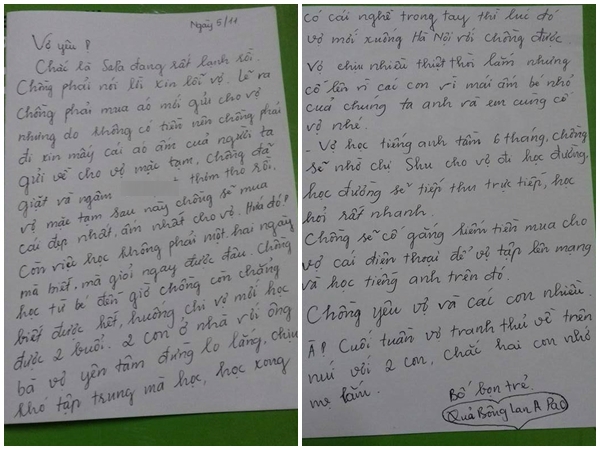 Ngày 5/11
Vợ yêu !
Chắc là Sapa đang rất lạnh rồi.
Chồng phải nói lời xin lỗi vợ. Lẽ ra
chồng phải mua áo mới gửi cho vợ
nhưng do không có tiền nên chồng phải
đi xin mấy cái áo ấm cũ người ta
gửi về cho vợ mặc tạm, chồng đã
giặt và ngâm thơm tho rồi.
vợ mặc tạm sau này chồng sẽ mua
cái đẹp nhất, ấm nhất cho vợ. Hứa đó!
Còn việc học không phải một, hai ngày
mà biết, mà giỏi ngay được đâu. Chồng
học từ bé đến giờ chồng còn chẳng
biết được hết, huống chi vợ mới học
được 2 buổi. 2 con ở nhà với ông
bà vợ yên tâm đừng lo lắng, chịu
khó tập trung mà học, học xong
có cái nghề trong tay thì lúc đó
vợ mới xuống Hà Nội với chồng được
Vợ chịu nhiều thiệt thòi lắm nhưng
cố lên vì các con vì mái ấm bé nhỏ
của chúng ta anh và em cùng cố
vợ nhé.
- Vợ học tiếng anh tầm 6 tháng, chồng
sẽ nhờ chị Shu cho vợ đi học đường,
học đường sẽ tiếp thu trực tiếp, học
hỏi rất nhanh.
Chồng sẽ cố gắng kiếm tiền mua cho
vợ cái điện thoại để vợ tập lên mạng
và học tiếng anh trên đó.
Chồng yêu vợ và các con nhiều.
À P Cuối tuần vợ tranh thủ về trên
núi với 2 con, chắc hai con nhớ
mẹ lắm.
Bố bọn trẻ.
Quả Bông Lan A Pao